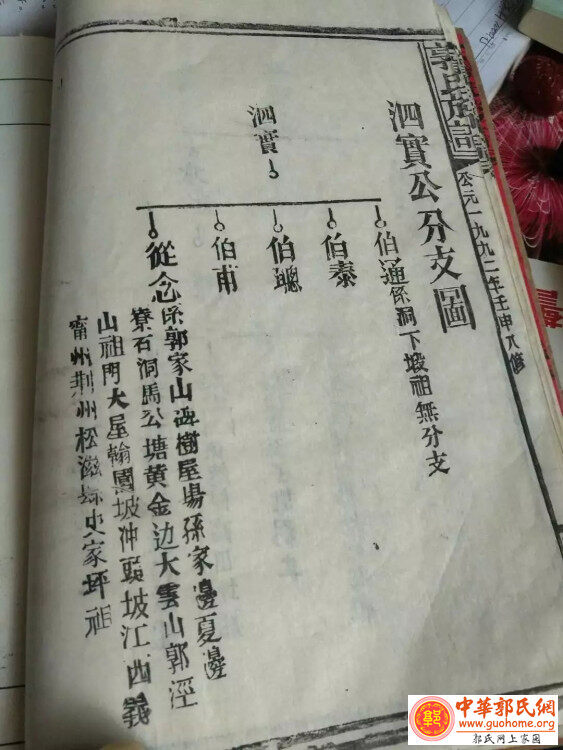 郭氏宗譜
公元一九九二年壬申六修
泗實公分支圖
泗實
伯通係洞下坡祖無分支
伯泰
伯聰
伯甫
從念係郭家山 樹屋場孫家邊夏邊
寮石洞馬公塘黄金边大雲山郭涇
山祖門大屋翰園坡冲頭坡江西義
甯州荆州松滋 史家坪祖
中華郭氏網
www.guohome.org
郭氏网上家園